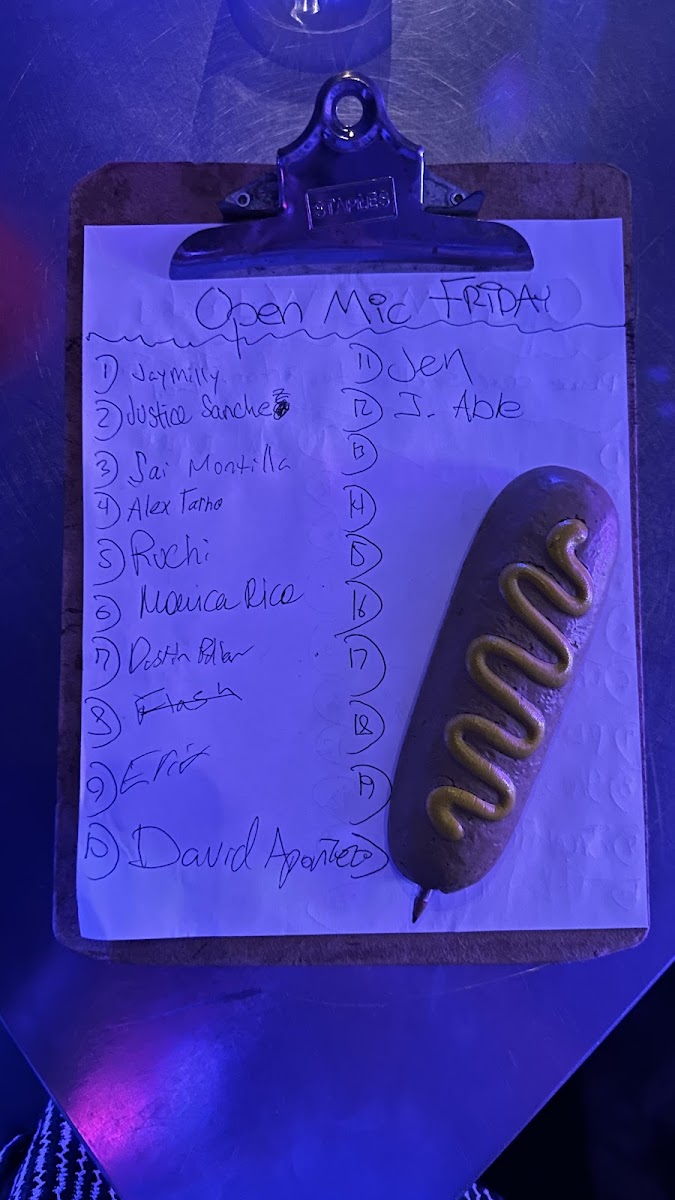 STAPLES
Open Mic FRIDAY
1 Jaymilly
2 Justice Sanchez
3 Sai Montilla
4 Alex
5 Ruchi
6 Monica Rico
7 Dustin
8 Flash
9 Eric
10 David
11 Jen
12 J. Able
13
14
15
16
17
18
19
20